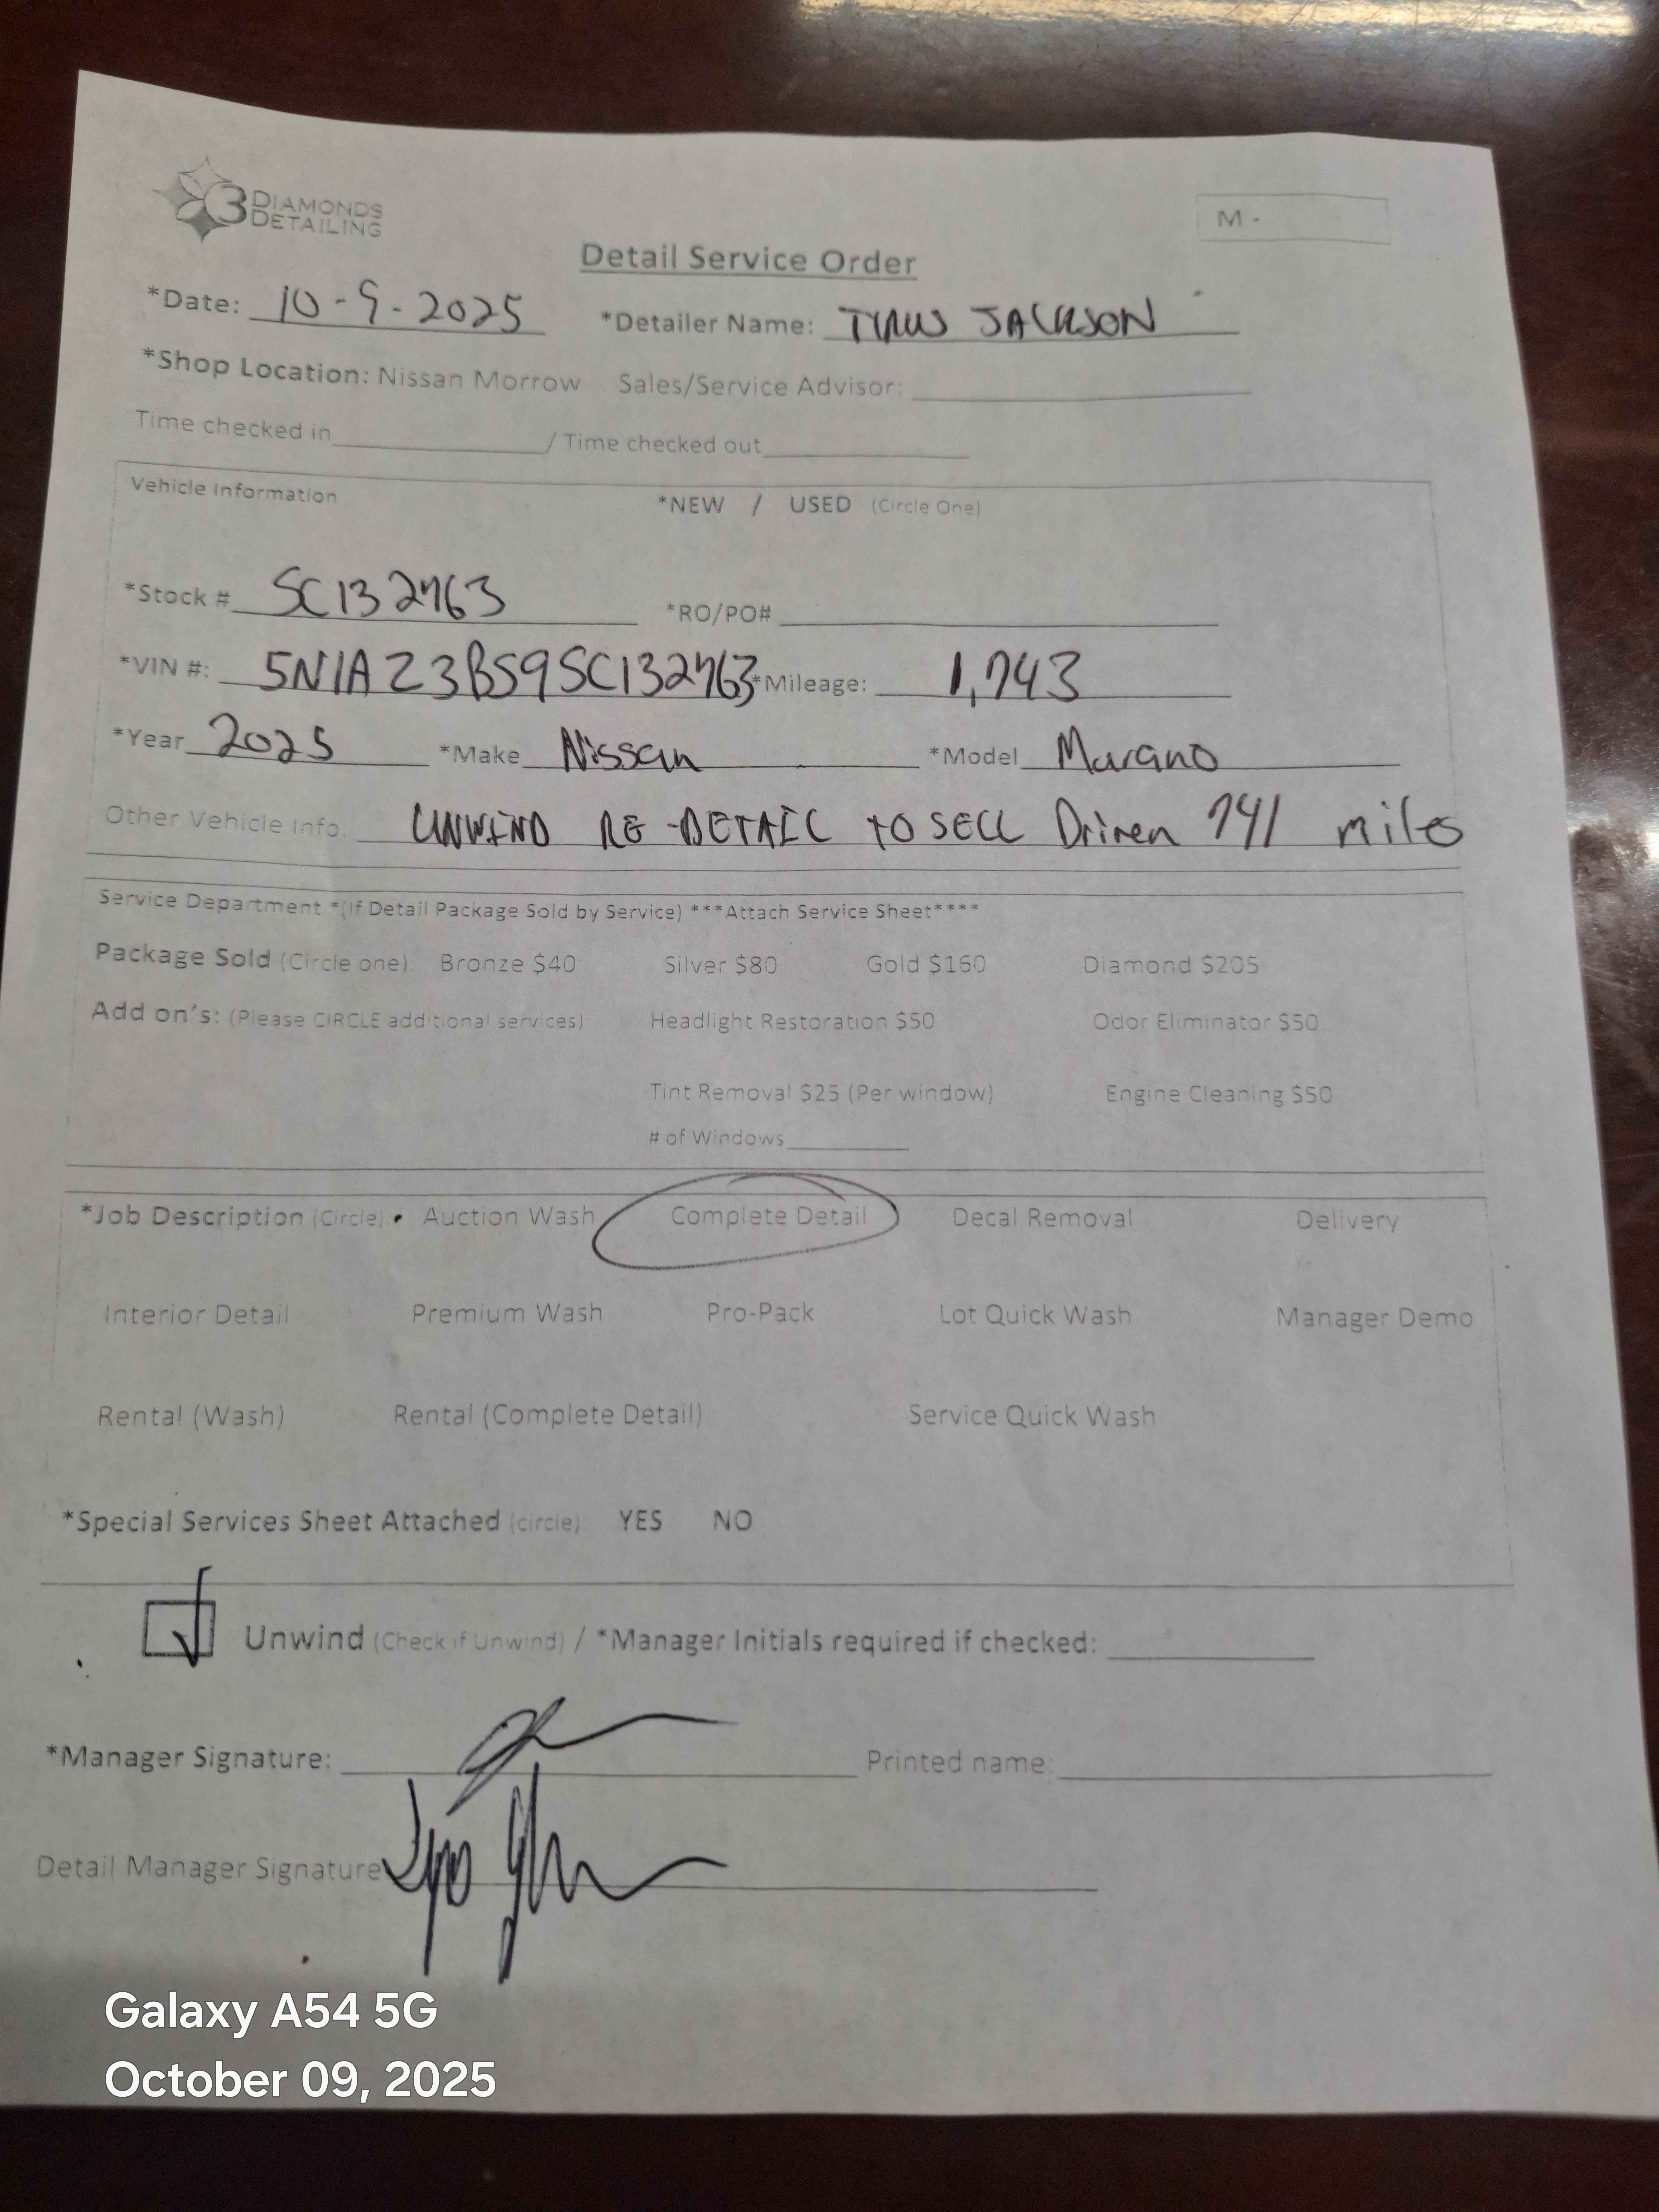 3 DIAMONDS
DETAILING
M -
Detail Service Order
*Date: 10-9-2025 *Detailer Name: TYRUS JACKSON
*Shop Location: Nissan Morrow Sales/Service Advisor:
Time checked in / Time checked out
Vehicle Information *NEW / USED (Circle One)
*Stock # SC132763 *RO/PO#
*VIN #: 5N1AZ3BS9SC132763 *Mileage: 1,743
*Year 2025 *Make Nissan *Model Murano
Other Vehicle Info. UNWIND RE-DETAIL TO SELL Driven 741 miles
Service Department *(If Detail Package Sold by Service) ***Attach Service Sheet****
Package Sold (Circle one): Bronze $40 Silver $80 Gold $160 Diamond $205
Add on's: (Please CIRCLE additional services) Headlight Restoration $50 Odor Eliminator $50
Tint Removal $25 (Per window) Engine Cleaning $50
# of Windows
*Job Description (Circle): Auction Wash Complete Detail Decal Removal Delivery
Interior Detail Premium Wash Pro-Pack Lot Quick Wash Manager Demo
Rental (Wash) Rental (Complete Detail) Service Quick Wash
*Special Services Sheet Attached (circle): YES NO
Unwind (Check if Unwind) / *Manager Initials required if checked:
*Manager Signature: Printed name:
Detail Manager Signature
Galaxy A54 5G
October 09, 2025